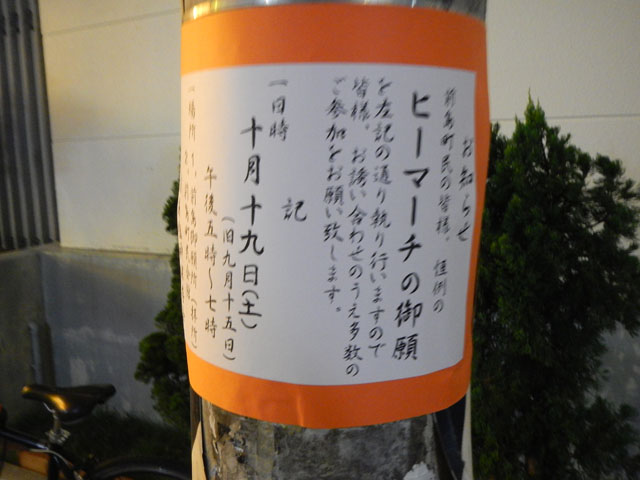 お知らせ
前島町民の皆様、恒例の
ヒーマーチの御願
を左記の通り執り行いますので
皆様、お誘い合わせのうえ多数の
ご参加をお願い致します。
記
一日時
十月十九日(土)
(旧九月十五日)
午後五時～七時
一場所 1、前島御願所(拝所)